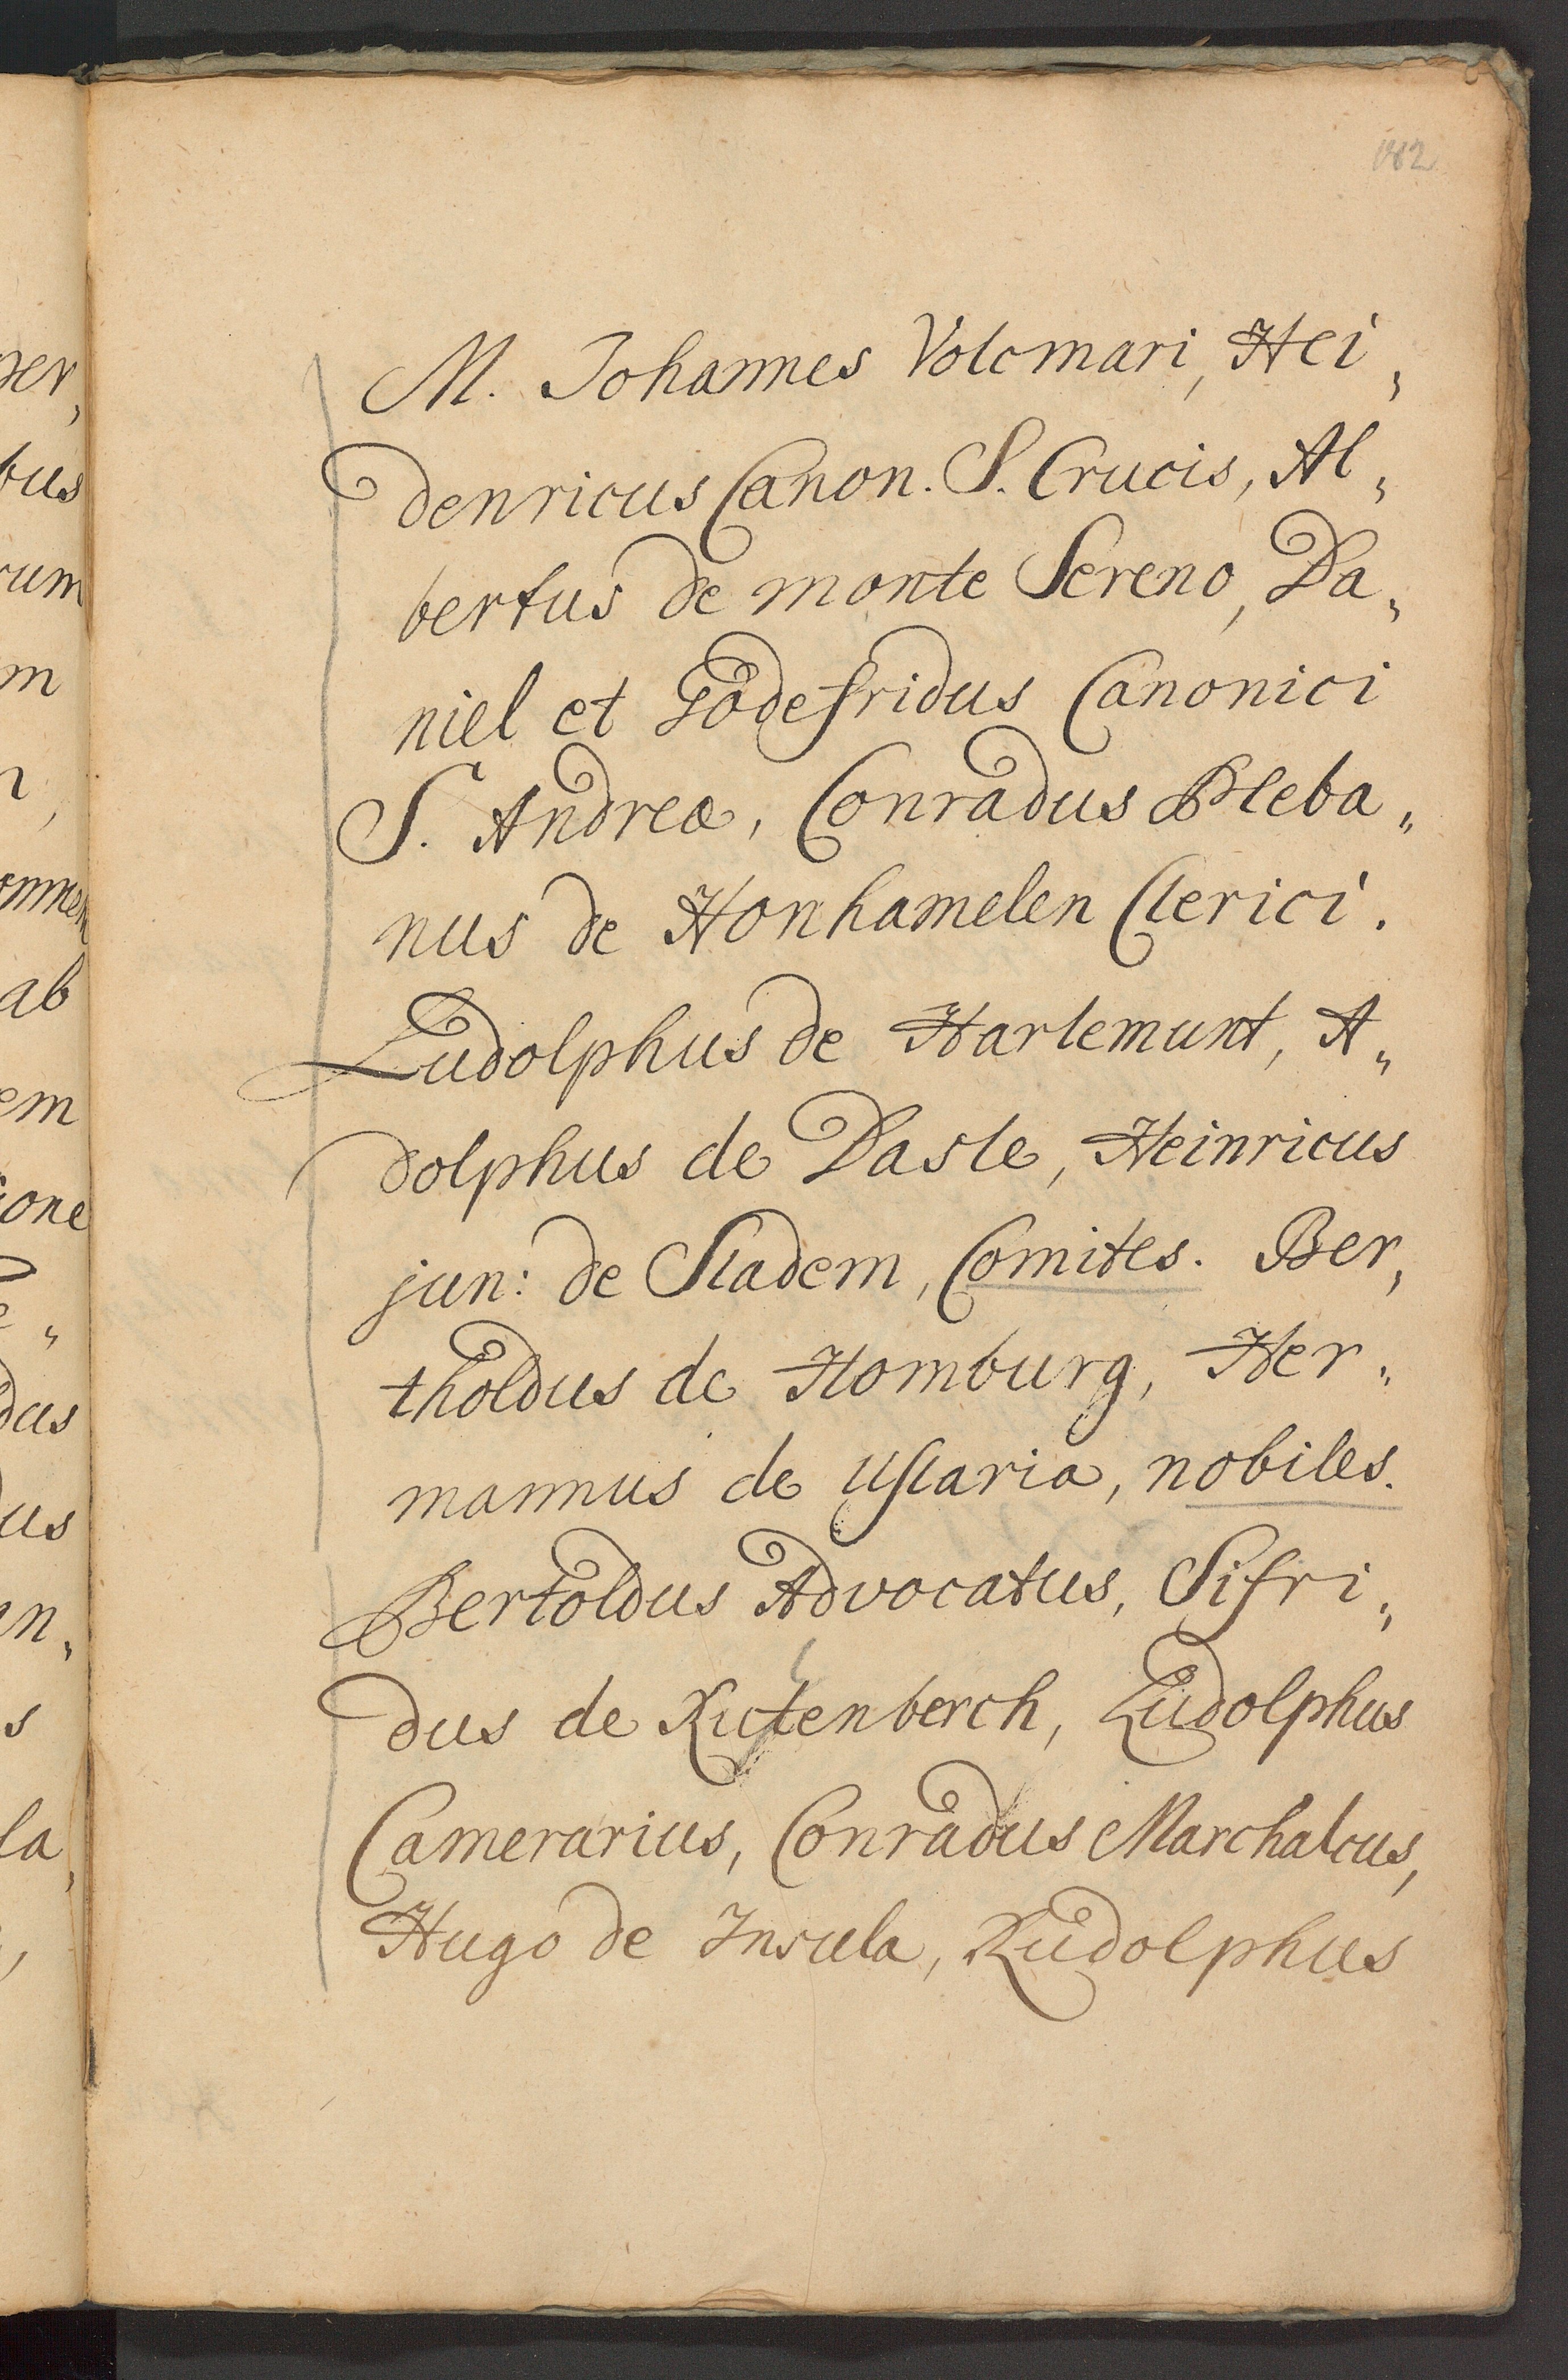 182
M. Johannes Volcmari, Hei„
denricus Canon. S. Crucis, Al„
bertus de monte Sereno, Da„
niel et Godefridus Canonici
S. Andreæ, Conradus Pleba„
nus de Honhamelen Clerici.
Ludolphus de Harlemunt, A„
dolphus de Dasle, Heinricus
jun: de Sladem, Comites. Ber„
tholdus de Homburg, Her„
mannus de Uslaria, nobiles.
Bertoldus Advocatus, Sifri„
dus de Rutenberch, Ludolphus
Camerarius, Conradus Marchalcus,
Hugo de Insula, Rudolphus